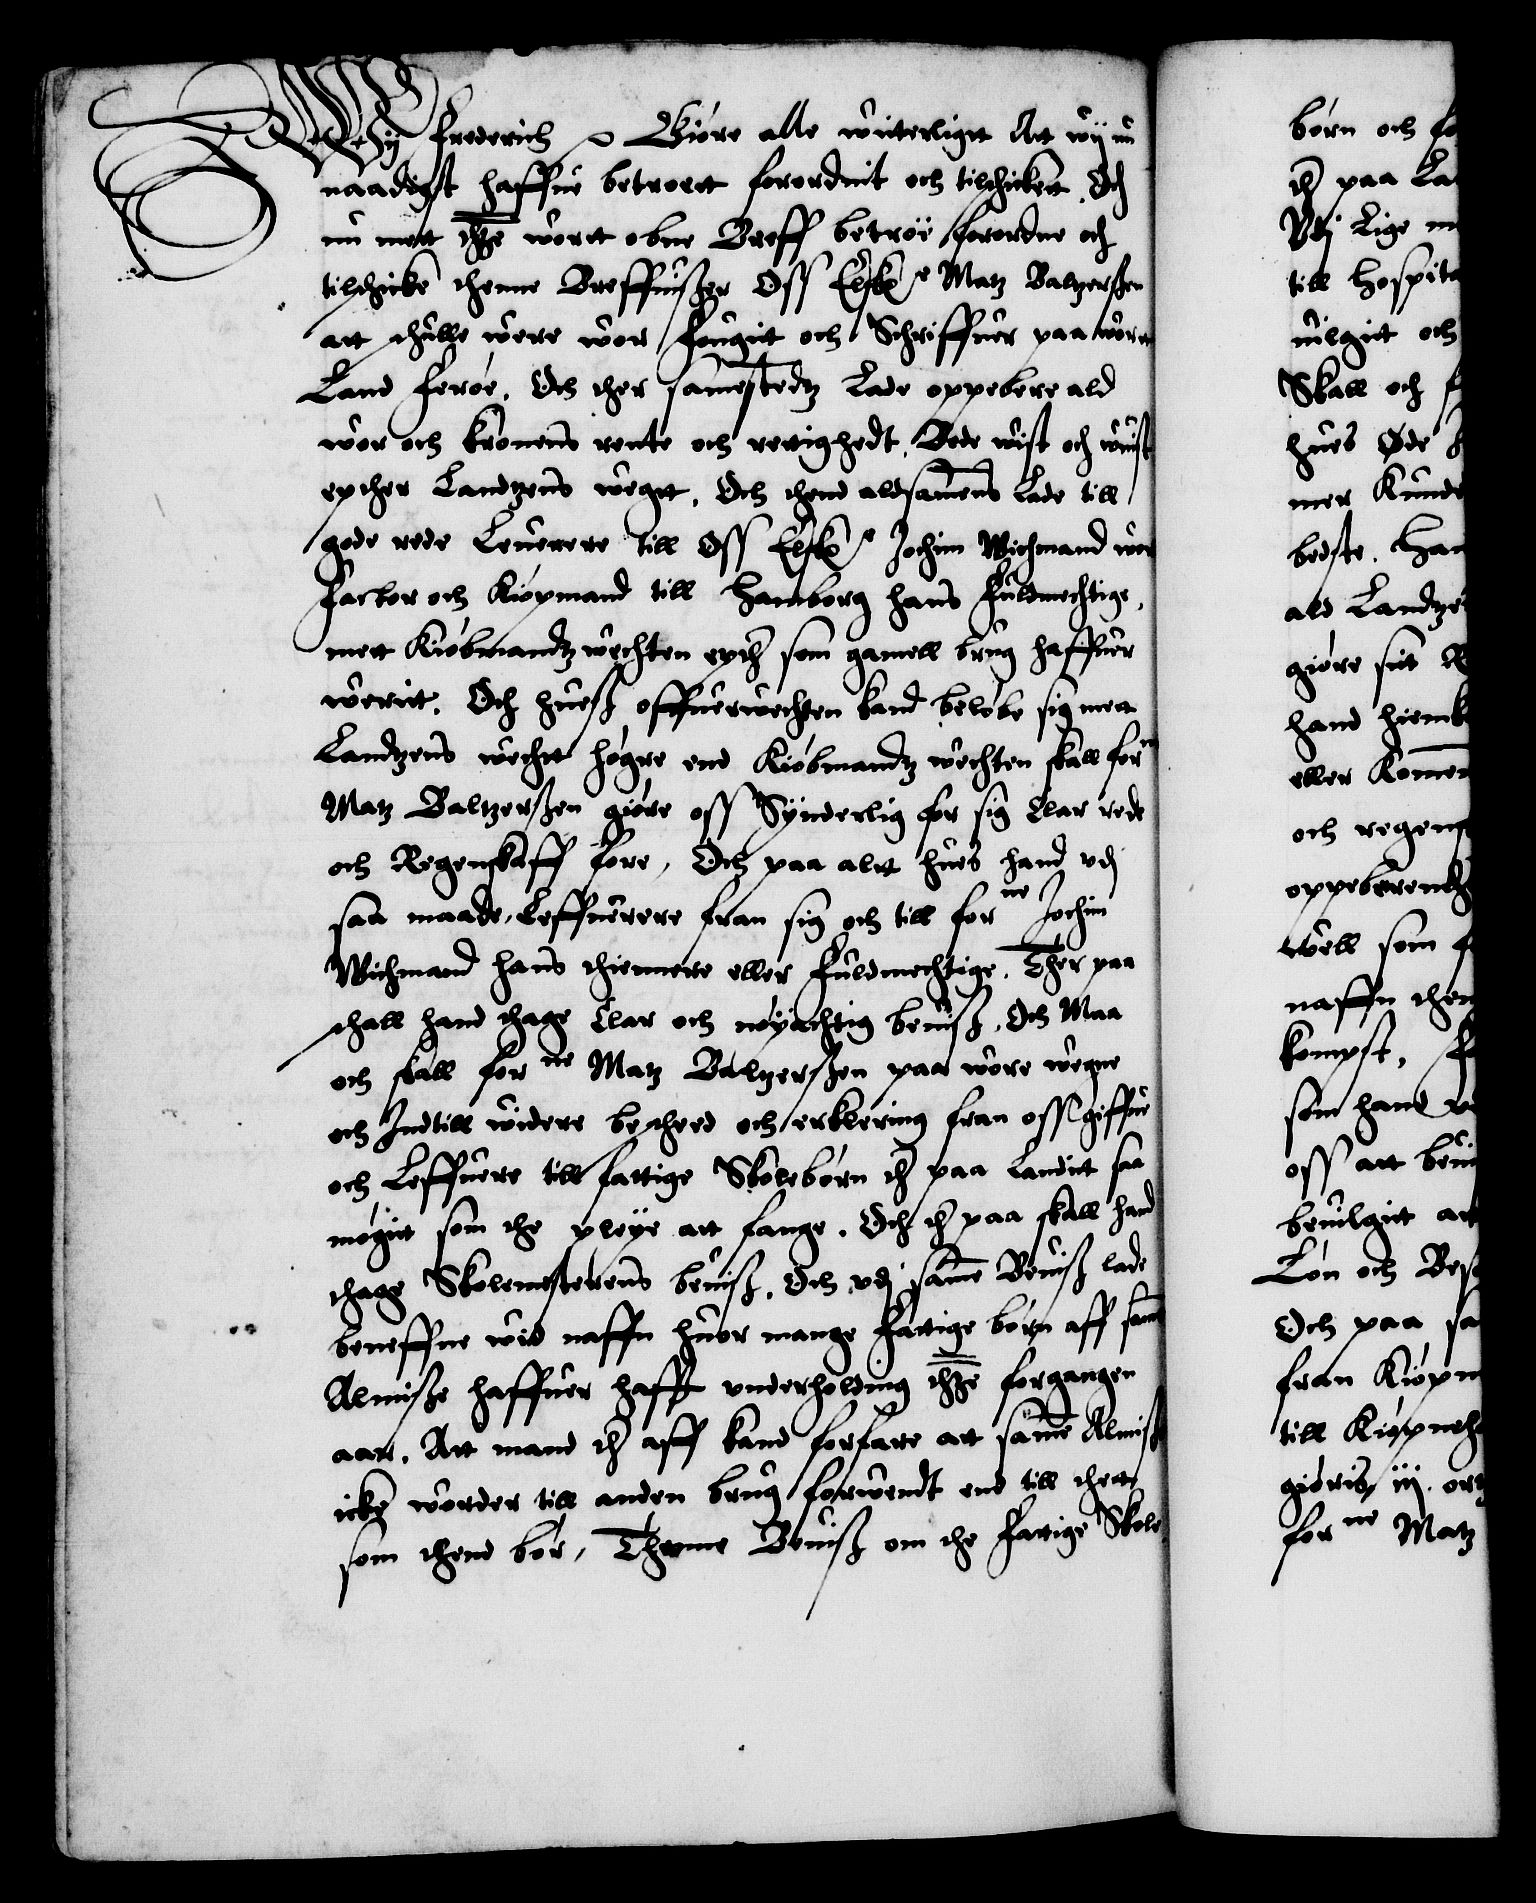 Wij Frederich etc Giøre alle witerligtt Att wij nu
naadigst haffue betroett forordnit och tilschickett. Och
nu mett thte wortt obne Breff betroe forordne och
tilschicke thenne Breffuißer Oss Elske Matz Baltzerßen
att schulle were wor fougit och Schriffuer paa wortt
Land Feroe. Och ther samestedtz Lade oppebere ald
wor och kronens rente och rettighedt. Bode wist och wuist
epther Landtzens wegtt. Och thend aldsamens Lade till
gode rede Leuerere till Oss Elske Jochim Wichmand wor
Factor och Kiøpmand till Hamborg hans fuldmechtige,
mett Kiøbmandtz wechten epth som gamell brug haffuer
werit. Och hueß offuerwechten kand beløbe sig mett
Landtzens wechtt høgre end Kiøbmandtz wechten skall forne
Matz Baltzerßen giøre oss Synderlig for sig Clar rede
och Regenskaff fore, Och paa altt hues hand vdj
saa maade Leffuerere fran sig och till forne Jochim
Wichmand hans thiennere eller Fuldmechtige. Ther paa
schall hand thage Clar och nøyachtig beuiß. Och Maa
och skall forne Matz Baltzerßen paa wore wegne
och Indtill widere bescheed och erklering fran oss giffue
och Leffuere till fattige Skolebørn th paa Landit saa
møgit som the pleye att fange. Och th paa skall hand
thage Skolemesterens beuiß. Och vdj same Beuiß lade
beneffne wid naffn huor mange Fattige børn aff same
Almiße haffuer hafft vnderholding thte forgangen
aar. Att mand th aff kand forfare att same Almiße
icke worder till anden brug forwendt end till thett
som thend bør, Thenne Beuiß om the Fattige Skole
børn och
th paa
Vdj Lige
till Hospita
uilgit och
Skall och
hues Øde
mer Kunde
bedste. Han
ald Landtze
giøre sit
hand hiemk
eller Komen
och regens
oppeberendt
well som
naffn then
kompst,
som hand
oss att beui
beuilgit att
Løn och Bes
Och paa sa
fran Kiøpm
till Kiøpneh
giøris iij. ort
forne Matz